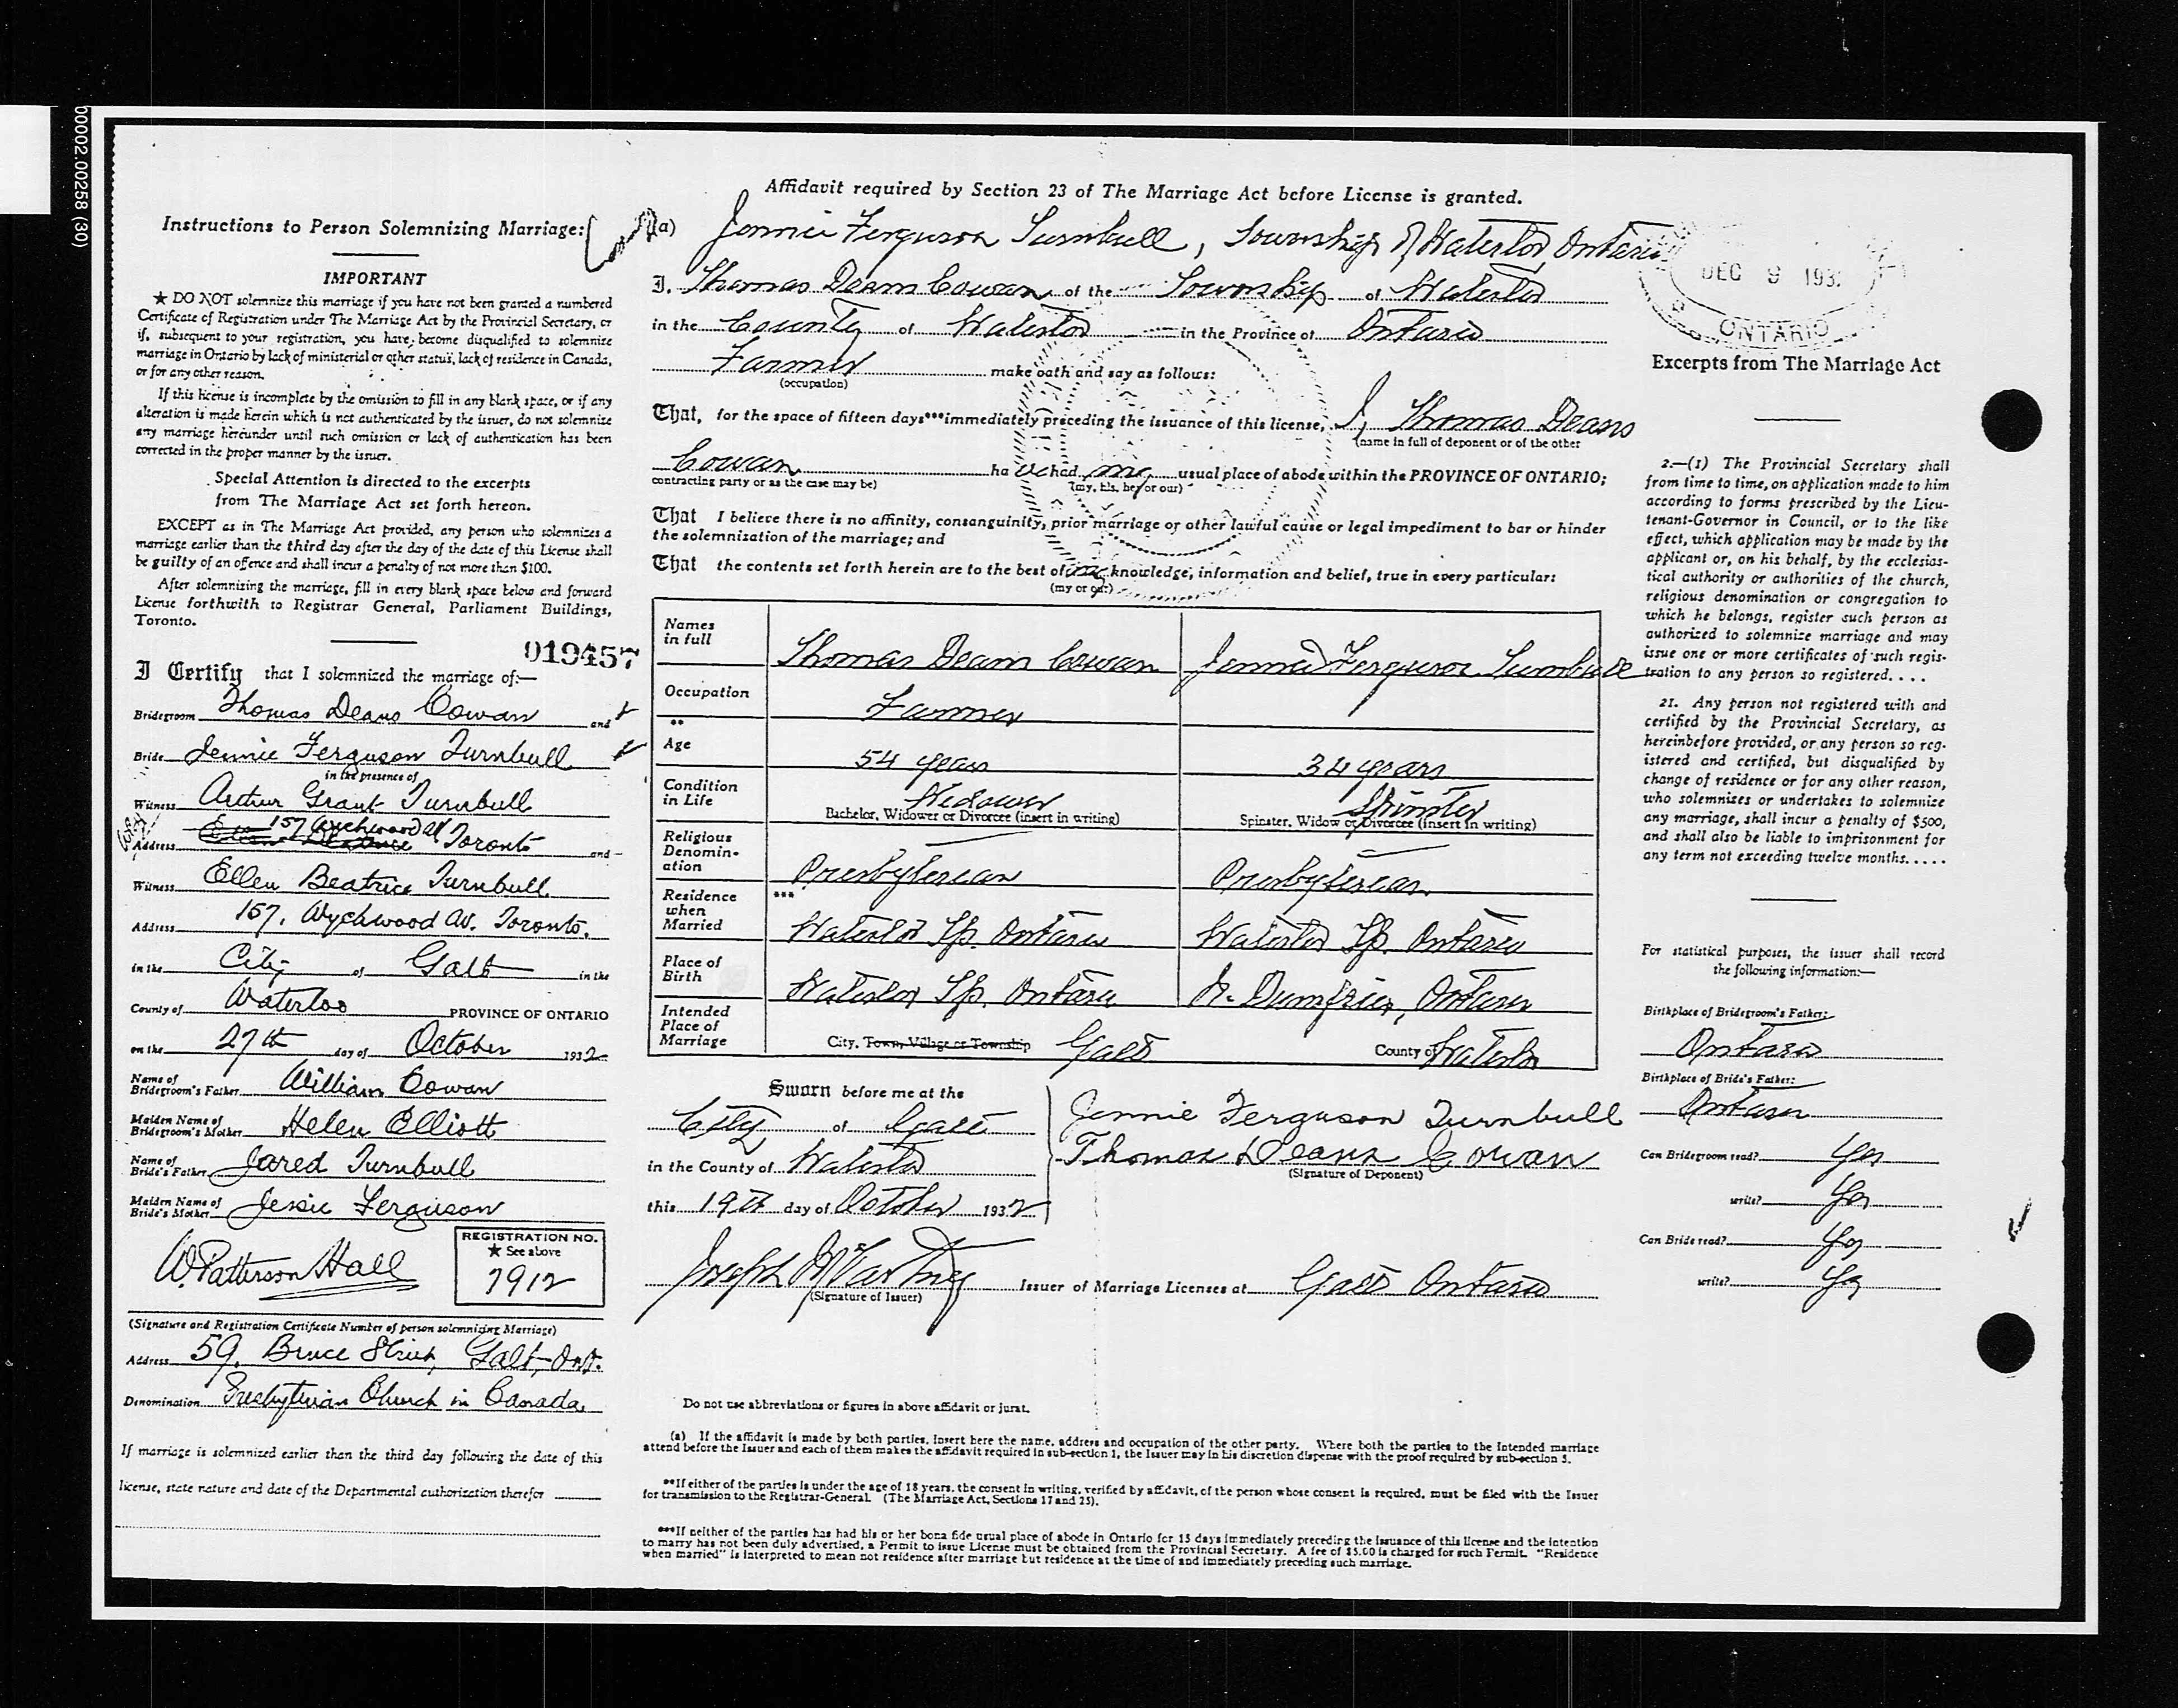 00002.00258 (30)
Instructions to Person Solemnizing Marriage:
IMPORTANT
★ DO NOT solemnize this marriage if you have not been granted a numbered
Certificate of Registration under The Marriage Act by the Provincial Secretary, or
if, subsequent to your registration, you have become disqualified to solemnize
marriage in Ontario by lack of ministerial or other status, lack of residence in Canada,
or for any other reason.
If this license is incomplete by the omission to fill in any blank space, or if any
alteration is made herein which is not authenticated by the issuer, do not solemnize
any marriage hereunder until such omission or lack of authentication has been
corrected in the proper manner by the issuer.
Special Attention is directed to the excerpts
from The Marriage Act set forth hereon.
EXCEPT as in The Marriage Act provided, any person who solemnizes a
marriage earlier than the third day after the day of the date of this License shall
be guilty of an offence and shall incur a penalty of not more than $100.
After solemnizing the marriage, fill in every blank space below and forward
License forthwith to Registrar General, Parliament Buildings,
Toronto.
019457
I Certify that I solemnized the marriage of:—
Bridegroom Thomas Deans Cowan and
Bride Jennie Ferguson Turnbull
in the presence of
Witness Arthur Grant Turnbull
157 Wychwood Av
Address Toronto and
Witness Ellen Beatrice Turnbull
Address 157, Wychwood Av. Toronto.
in the City of Galt in the
County of Waterloo PROVINCE OF ONTARIO
on the 27th day of October 1932
Name of Bridegroom's Father William Cowan
Maiden Name of Bridegroom's Mother Helen Elliott
Name of Bride's Father Jared Turnbull
Maiden Name of Bride's Mother Jessie Ferguson
W. Patterson Hall
REGISTRATION NO.
★ See above
7912
(Signature and Registration Certificate Number of person solemnizing Marriage)
Address 59, Bruce Street, Galt, Ont.
Denomination Presbyterian Church in Canada.
If marriage is solemnized earlier than the third day following the date of this
license, state nature and date of the Departmental authorization therefor
Affidavit required by Section 23 of The Marriage Act before License is granted.
(a) Jennie Ferguson Turnbull, Township of Waterloo, Ontario
I, Thomas Deans Cowan of the Township of Waterloo
in the County of Waterloo in the Province of Ontario
Farmer make oath and say as follows:
(occupation)
That, for the space of fifteen days*** immediately preceding the issuance of this license, I, Thomas Deans
(name in full of deponent or of the other
Cowan ha ve had my usual place of abode within the PROVINCE OF ONTARIO;
contracting party or as the case may be) (my, his, her or our)
That I believe there is no affinity, consanguinity, prior marriage or other lawful cause or legal impediment to bar or hinder
the solemnization of the marriage; and
That the contents set forth herein are to the best of my knowledge, information and belief, true in every particular:
(my or our)
Names in full Thomas Deans Cowan Jennie Ferguson Turnbull
Occupation Farmer
**
Age 54 years 34 years
Condition in Life Widower Spinster
Bachelor, Widower or Divorcee (insert in writing) Spinster, Widow or Divorcee (insert in writing)
Religious Denomination Presbyterian Presbyterian
Residence when Married *** Waterloo Tp. Ontario Waterloo Tp. Ontario
Place of Birth Waterloo Tp. Ontario N. Dumfries, Ontario
Intended Place of Marriage City, Town, Village or Township Galt County of Waterloo
Sworn before me at the
City of Galt
in the County of Waterloo
this 19th day of October 1932
Jennie Ferguson Turnbull
Thomas Deans Cowan
(Signature of Deponent)
Joseph McCartney Issuer of Marriage Licenses at Galt Ontario
(Signature of Issuer)
Do not use abbreviations or figures in above affidavit or jurat.
(a) If the affidavit is made by both parties, insert here the name, address and occupation of the other party. Where both the parties to the intended marriage
attend before the Issuer and each of them makes the affidavit required in sub-section 1, the Issuer may in his discretion dispense with the proof required by sub-section 5.
**If either of the parties is under the age of 18 years, the consent in writing, verified by affidavit, of the person whose consent is required, must be filed with the Issuer
for transmission to the Registrar-General. (The Marriage Act, Sections 17 and 25).
***If neither of the parties has had his or her bona fide usual place of abode in Ontario for 15 days immediately preceding the issuance of this license and the intention
to marry has not been duly advertised, a Permit to issue License must be obtained from the Provincial Secretary. A fee of $5.00 is charged for such Permit. "Residence
when married" is interpreted to mean not residence after marriage but residence at the time of and immediately preceding such marriage.
DEC 9 193
ONTARIO
Excerpts from The Marriage Act
2.—(1) The Provincial Secretary shall
from time to time, on application made to him
according to forms prescribed by the Lieu-
tenant-Governor in Council, or to the like
effect, which application may be made by the
applicant or, on his behalf, by the ecclesias-
tical authority or authorities of the church,
religious denomination or congregation to
which he belongs, register such person as
authorized to solemnize marriage and may
issue one or more certificates of such regis-
tration to any person so registered....
21. Any person not registered with and
certified by the Provincial Secretary, as
hereinbefore provided, or any person so reg-
istered and certified, but disqualified by
change of residence or for any other reason,
who solemnizes or undertakes to solemnize
any marriage, shall incur a penalty of $500,
and shall also be liable to imprisonment for
any term not exceeding twelve months.....
For statistical purposes, the issuer shall record
the following information:—
Birthplace of Bridegroom's Father:
Ontario
Birthplace of Bride's Father:
Ontario
Can Bridegroom read? Yes
write? Yes
Can Bride read? Yes
write? Yes